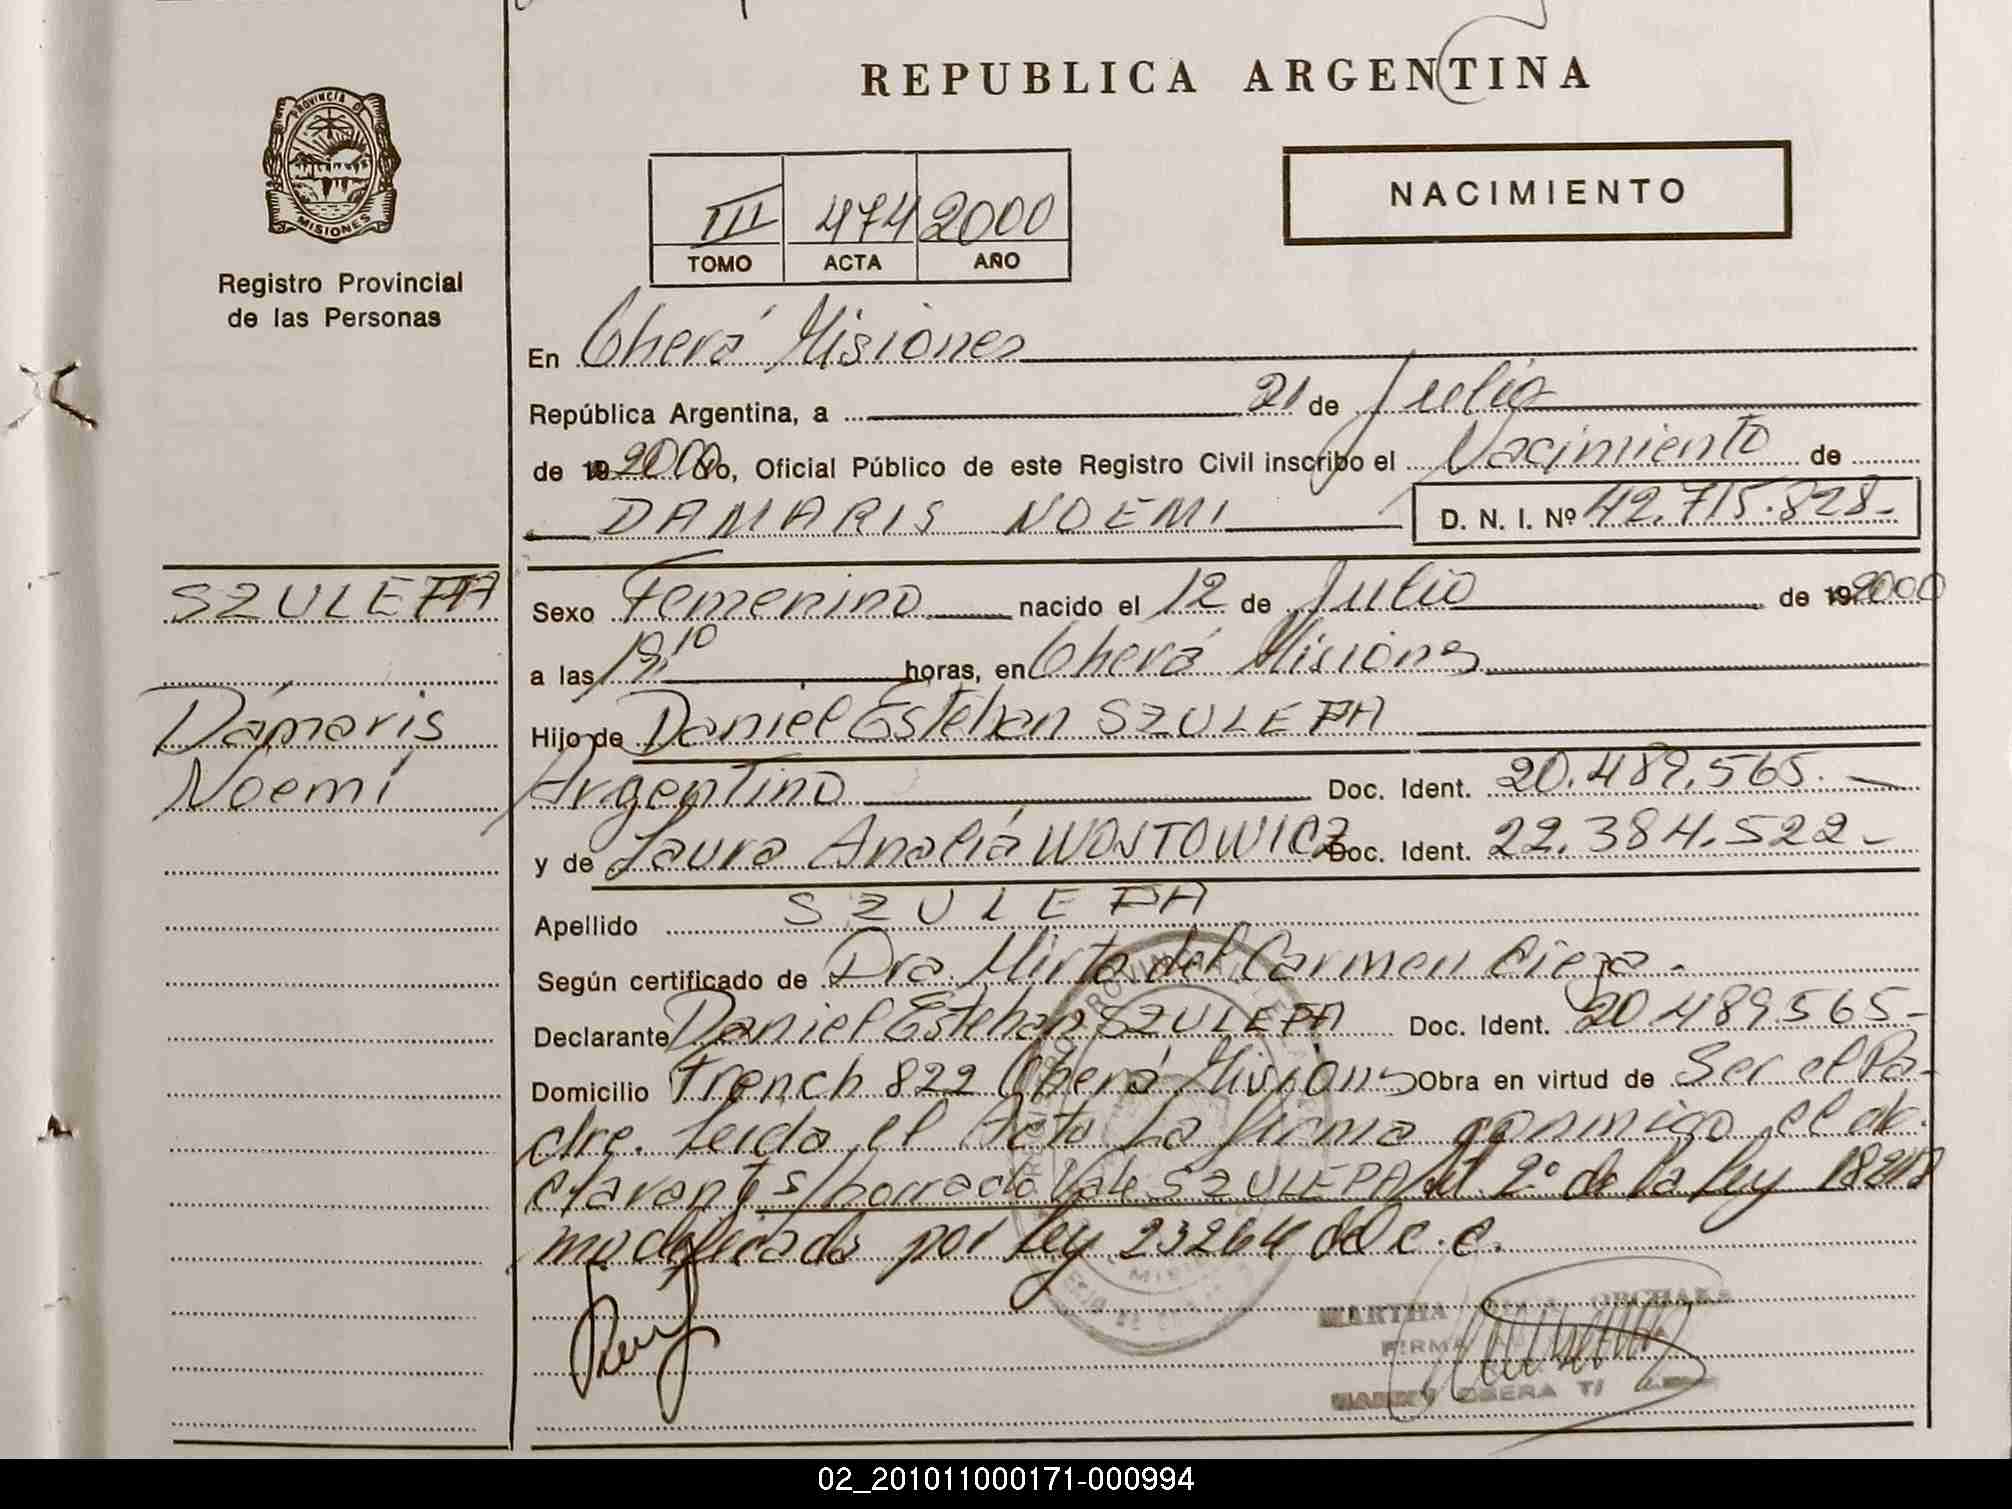 PROVINCIA DE
MISIONES
Registro Provincial
de las Personas
SZULEPA
Dámaris
Noemí
REPUBLICA ARGENTINA
III 474 2000
TOMO ACTA AÑO
NACIMIENTO
En Oberá Misiones
República Argentina, a 21 de Julio
de 19 2000 Yo, Oficial Público de este Registro Civil inscribo el Nacimiento de
DAMARIS NOEMI D. N. I. Nº 42.715.828-
Sexo Femenino nacido el 12 de Julio de 19 2000
a las 19,10 horas, en Oberá Misiones
Hijo de Daniel Esteban SZULEPA
Argentino Doc. Ident. 20.489.565.
y de Laura Analía WOJTOWICZ Doc. Ident. 22.384.522-
Apellido SZULEPA
Según certificado de Dra. Mirta del Carmen Cieza.
Declarante Daniel Esteban SZULEPA Doc. Ident. 20.489.565-
Domicilio French 822 Oberá Misiones Obra en virtud de Ser el Pa-
dre. Leída el Acta La firma conmigo el de-
clarante s/borrado Vale SZULEPA Art 2º de la Ley 18248
modificado por Ley 23264 del C.C.
MARTHA ORCHAKS
FIRMA
OBERA
02_201011000171-000994